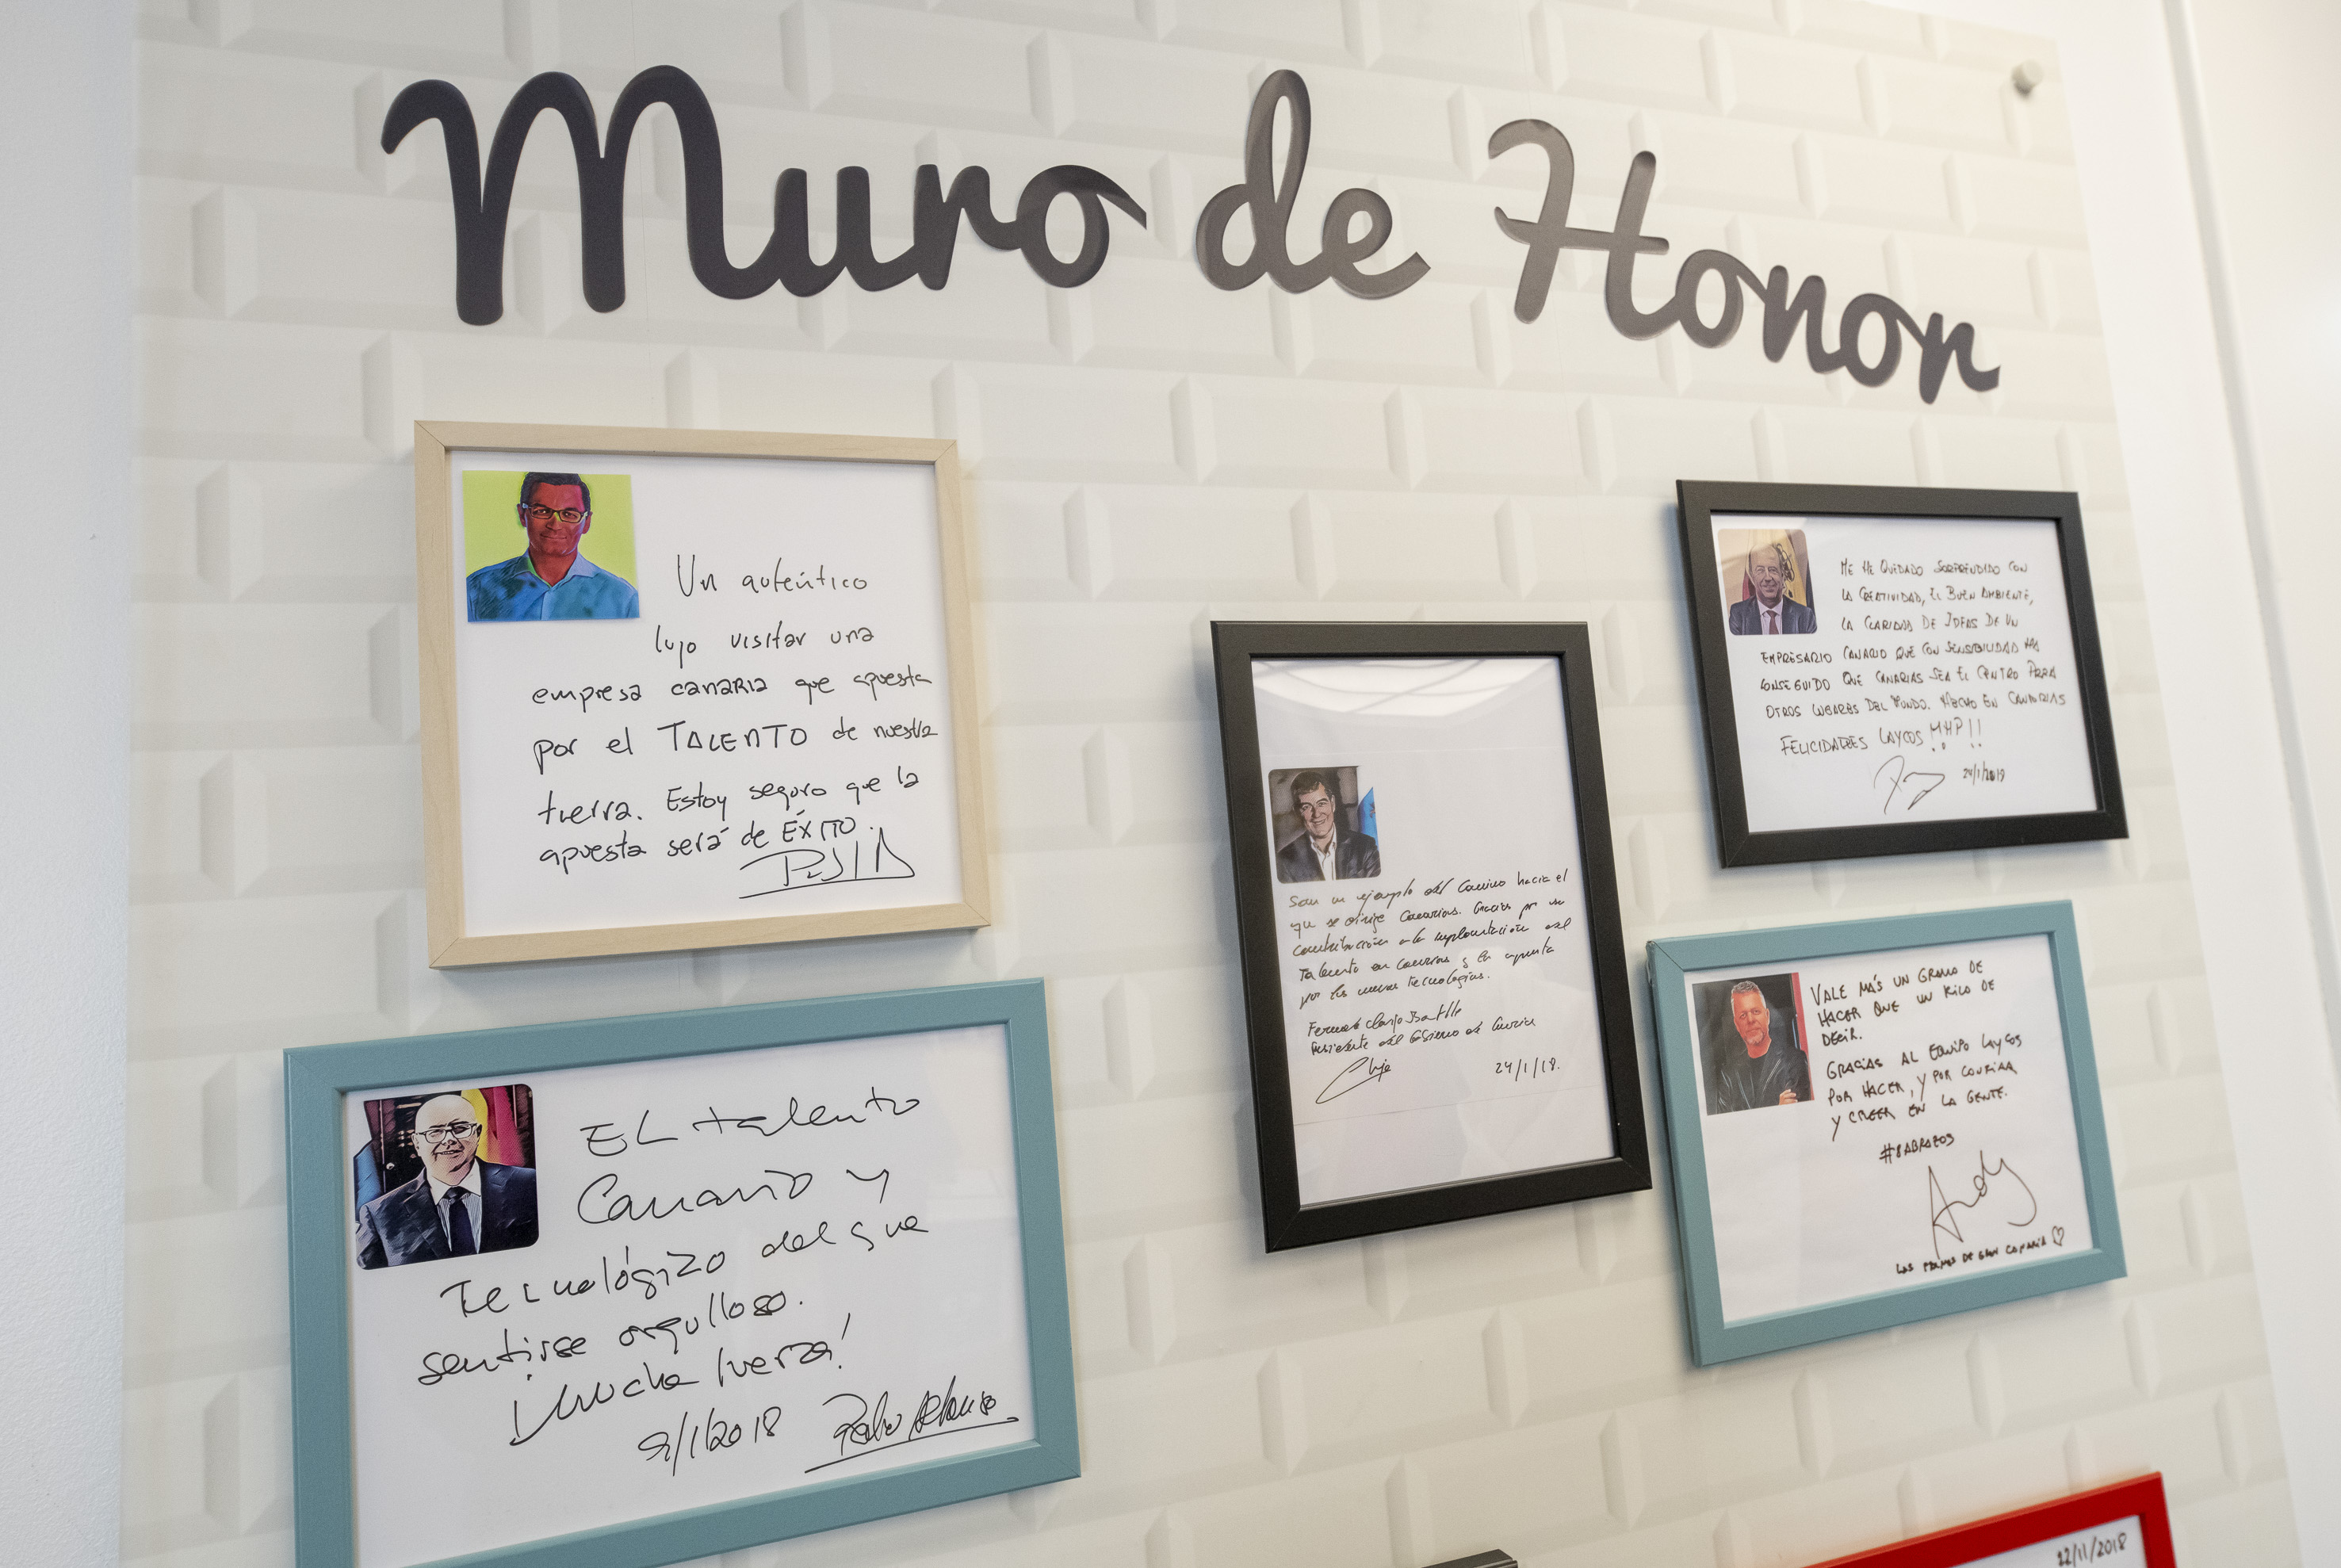 Muro de Honor
Un auténtico
lujo visitar una
empresa CANARIA que apuesta
por el TALENTO de nuestra
tierra. Estoy seguro que la
apuesta será de ÉXITO.
EL talento
Canario y
Tecnológizo del que
sentirse orgulloso.
¡Mucha fuerza!
9/1/2018 Pedro Alonso
Son un ejemplo del Camino hacia el
que se dirige Canarias. Gracias por su
contribución a la implantación del
Talento en Canarias y la apuesta
por las nuevas Tecnologías.
Fernando Clavijo Batlle
Presidente del Gobierno de Canarias
Clavijo
24/1/18.
ME HE QUEDADO SORPRENDIDO CON
LA CREATIVIDAD, EL BUEN AMBIENTE,
LA CLARIDAD DE IDEAS DE UN
EMPRESARIO CANARIO QUE CON SENSIBILIDAD HA
CONSEGUIDO QUE CANARIAS SEA EL CENTRO PARA
OTROS LUGARES DEL MUNDO. HECHO EN CANARIAS
FELICIDADES LAYCOS MHP!!
24/1/2019
VALE MÁS UN GRAMO DE
HACER QUE UN KILO DE
DECIR.
GRACIAS AL EQUIPO LAYCOS
POR HACER, Y POR CONFIAR
Y CREER EN LA GENTE.
#8ABRAZOS
Andy
LAS PALMAS DE GRAN CANARIA
22/11/2018